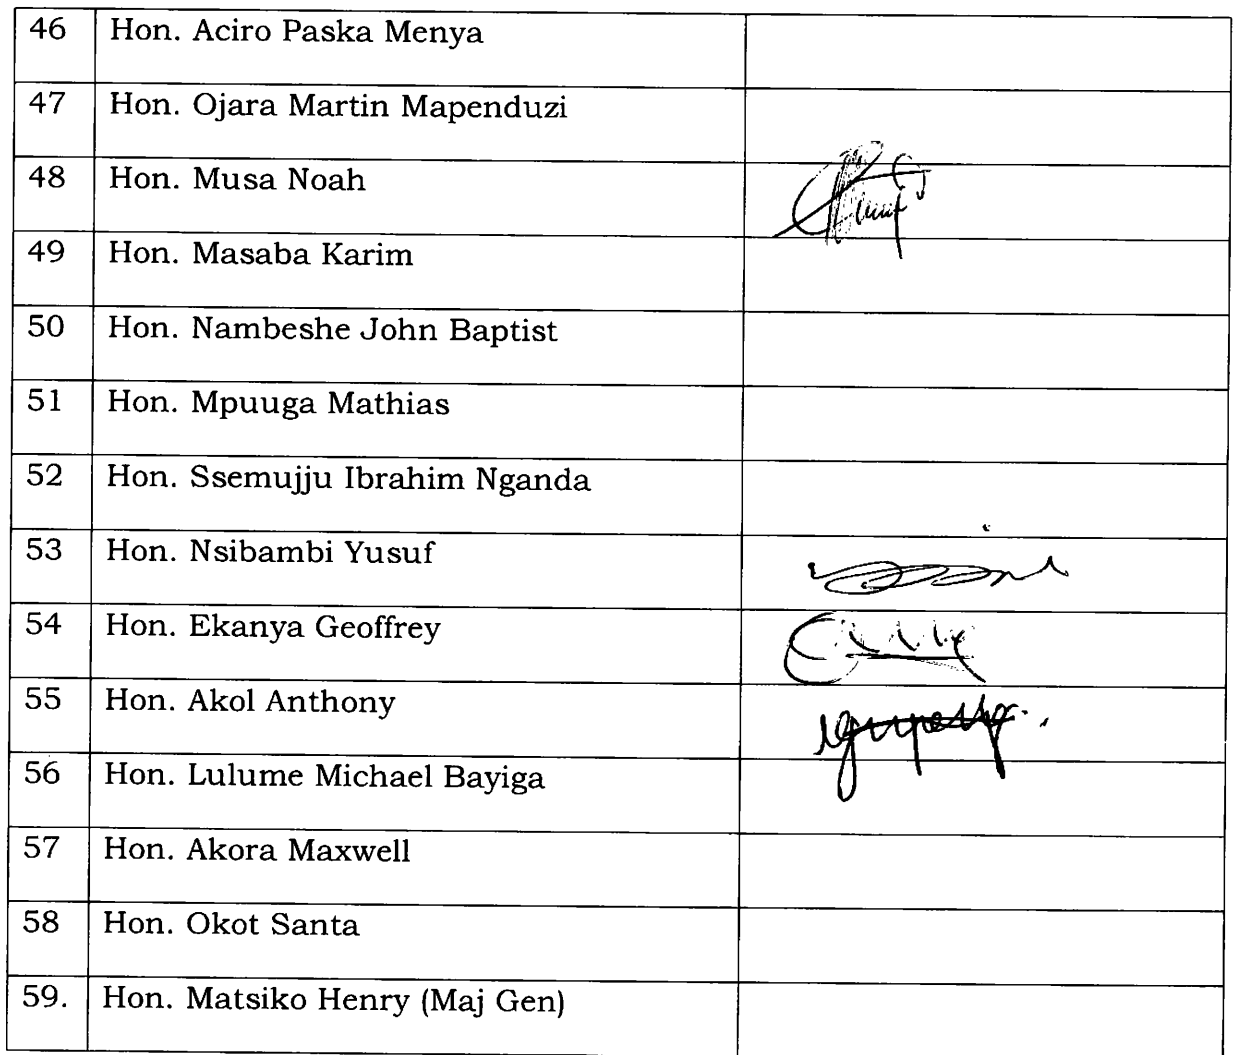 46 Hon. Aciro Paska Menya
47 Hon. Ojara Martin Mapenduzi
48 Hon. Musa Noah
49 Hon. Masaba Karim
50 Hon. Nambeshe John Baptist
51 Hon. Mpuuga Mathias
52 Hon. Ssemujju Ibrahim Nganda
53 Hon. Nsibambi Yusuf
54 Hon. Ekanya Geoffrey
55 Hon. Akol Anthony
56 Hon. Lulume Michael Bayiga
57 Hon. Akora Maxwell
58 Hon. Okot Santa
59. Hon. Matsiko Henry (Maj Gen)